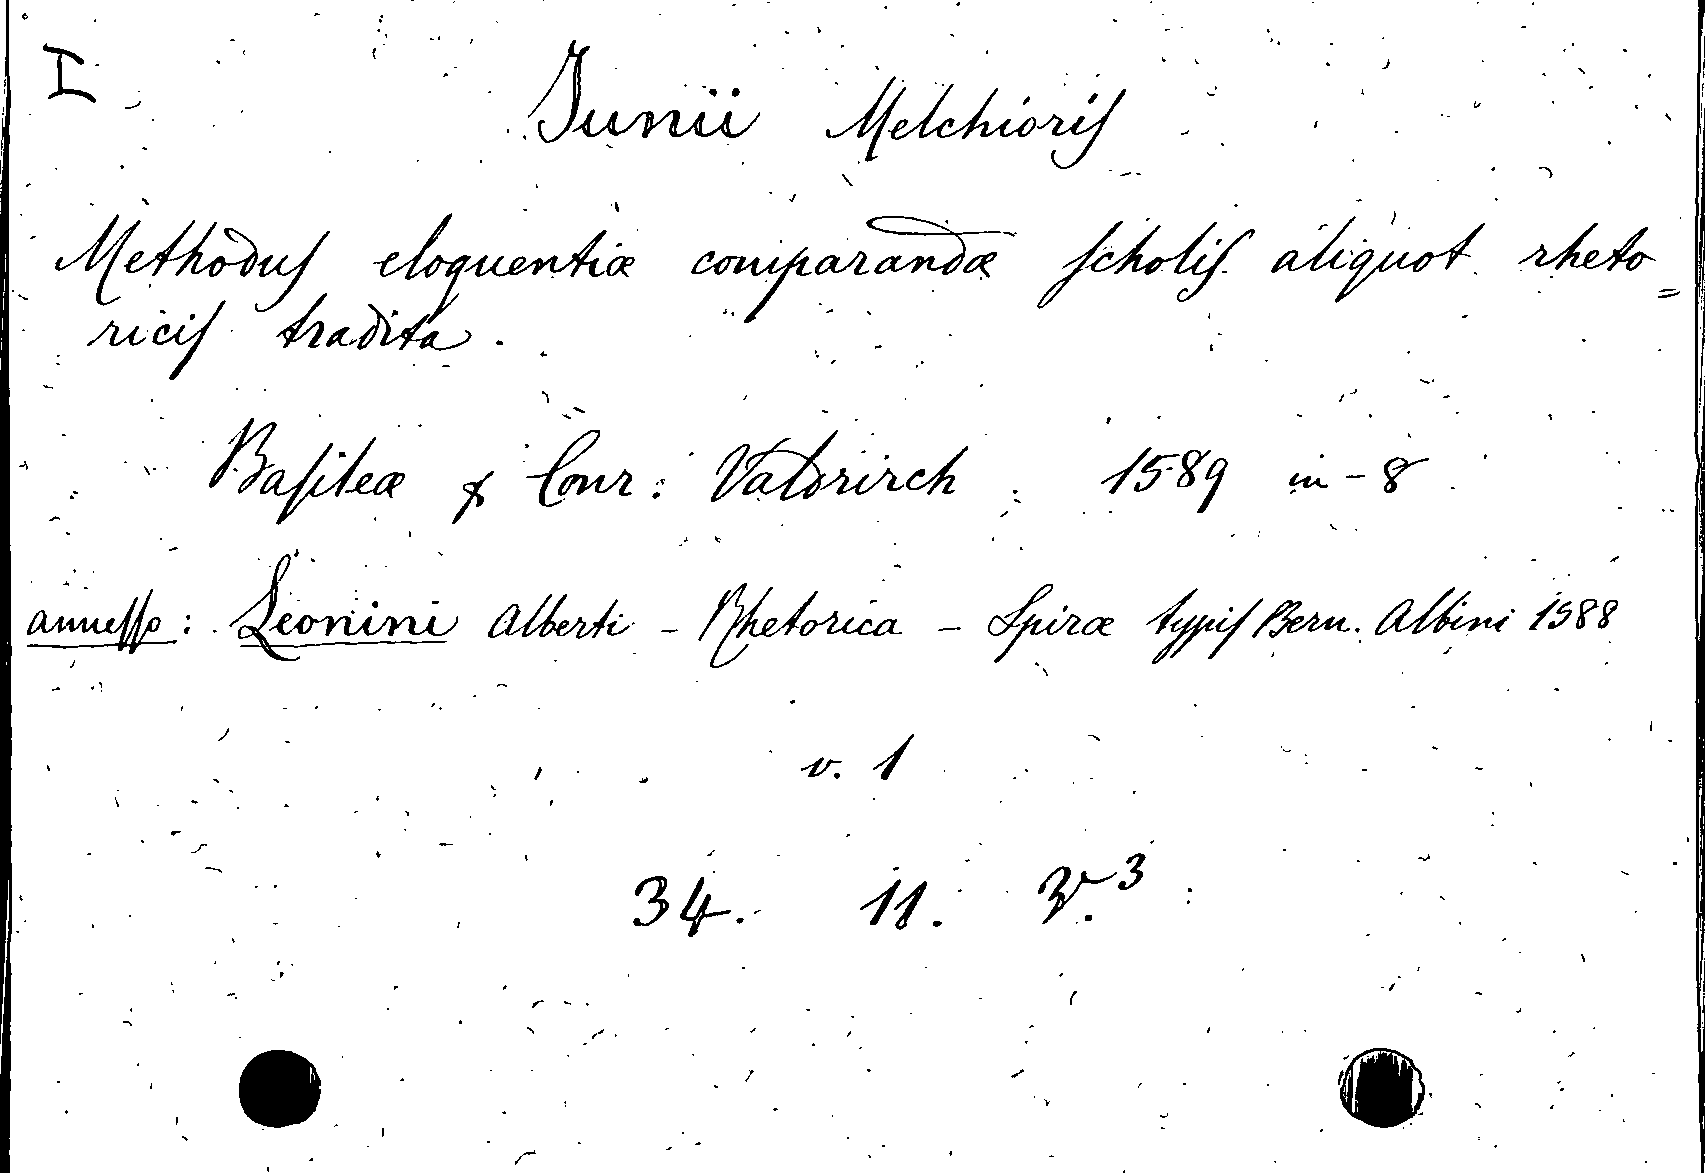 I
Junii Melchioris
Methodus eloquentiæ comparandæ scholis aliquot rheto=
ricis tradita.
Basileæ p Conr: Valdrirch 1589 in-8
annesso: Leonini Alberti - Rhetorica - Spiræ typis Bern. Albini 1588
v. 1
34. 11. 3